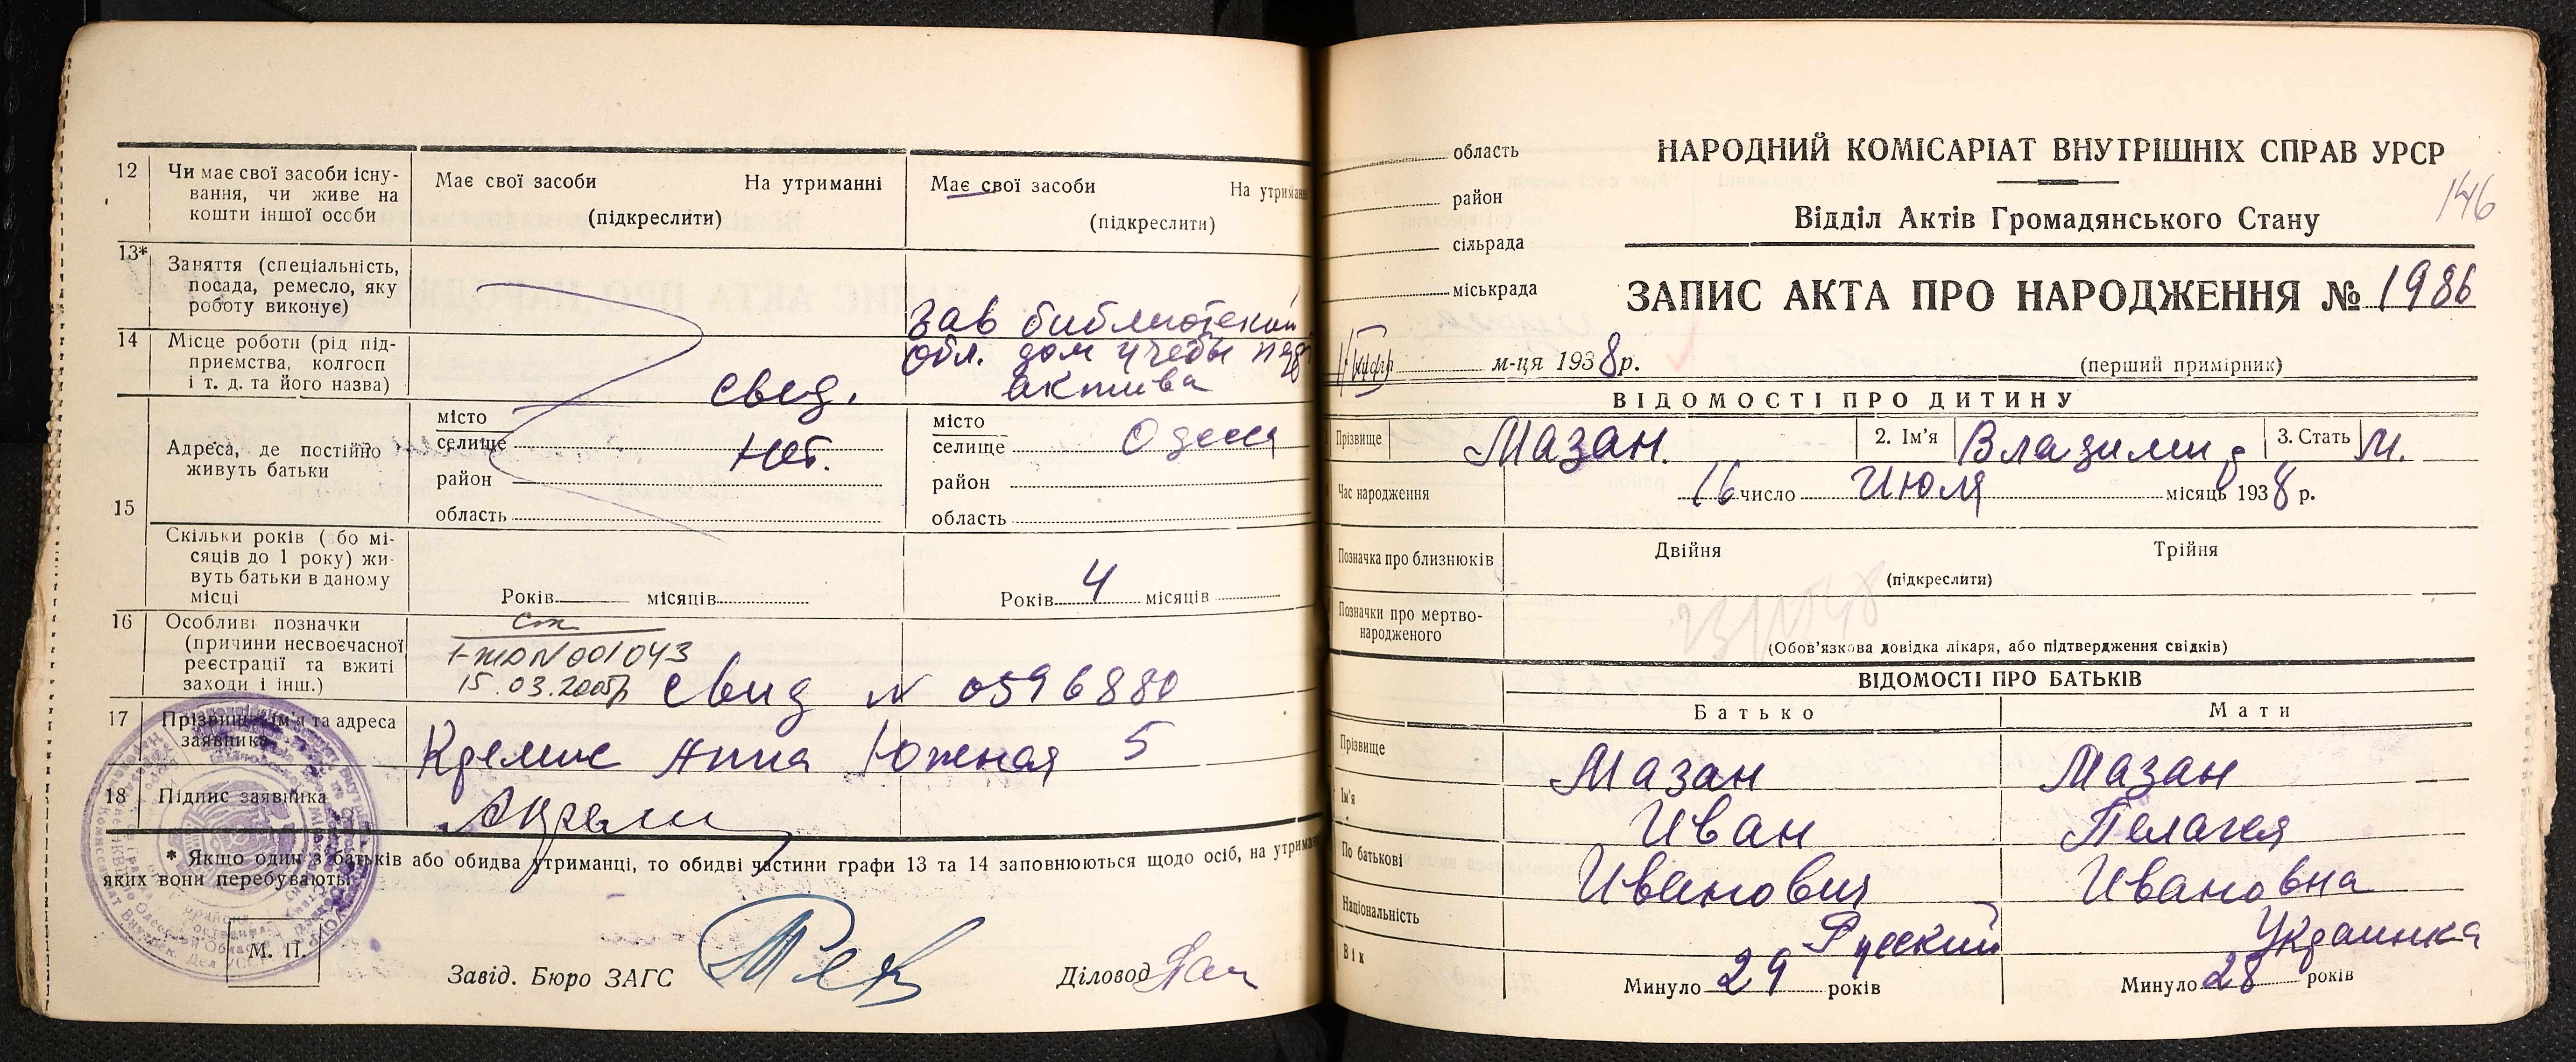 12 Чи має свої засоби існу-
вання, чи живе на
кошти іншої особи
Має свої засоби На утриманні
(підкреслити)
Має свої засоби На утрима
(підкреслити)
13* Заняття (спеціальність,
посада, ремесло, яку
роботу виконує)
Зав библиотекой
14 Місце роботи (рід під-
приємства, колгосп
і т. д. та його назва)
свед.
обл. дом учебы
актива
15 Адреса, де постійно
живуть батьки
місто
селище нет.
район
область
місто
селище Одесса
район
область
Скільки років (або мі-
сяців до 1 року) жи-
вуть батьки в даному
місці
Років місяців
Років 4 місяців
16 Особливі позначки
(причини несвоєчасної
реєстрації та вжиті
заходи і інш.)
I-ЖД N 001043
15.03.2005р свид N 0596880
17 Прізвище ім'я та адреса
заявника
Кремис Анна Южная 5
18 Підпис заявника
* Якщо один з батьків або обидва утриманці, то обидві частини графи 13 та 14 заповнюються щодо осіб, на утриман
яких вони перебувають.
М. П.
Завід. Бюро ЗАГС
Діловод
область
район
сільрада
міськрада
НАРОДНИЙ КОМІСАРІАТ ВНУТРІШНІХ СПРАВ УРСР
146
Відділ Актів Громадянського Стану
ЗАПИС АКТА ПРО НАРОДЖЕННЯ № 1986
м-ця 1938 р.
(перший примірник)
ВІДОМОСТІ ПРО ДИТИНУ
Прізвище Мазан. 2. Ім'я Владимир 3. Стать М.
Час народження 16 число Июля місяць 1938 р.
Позначка про близнюків Двійня Трійня
(підкреслити)
Позначки про мертво-
народженого
(Обов'язкова довідка лікаря, або підтвердження свідків)
ВІДОМОСТІ ПРО БАТЬКІВ
Батько Мати
Прізвище Мазан Мазан
Ім'я Иван Пелагея
По батькові Иванович Ивановна
Національність Русский Украинка
Вік Минуло 29 років Минуло 28 років